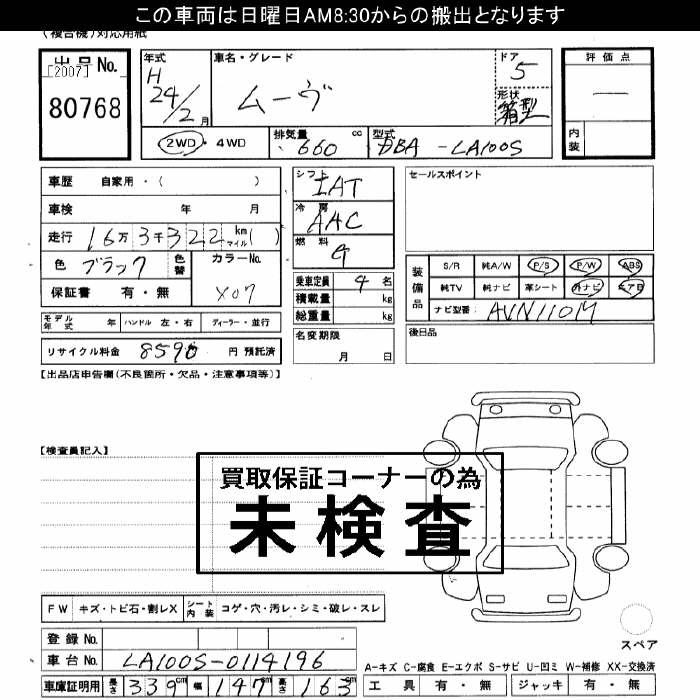 この車両は日曜日AM8:30からの搬出となります
(複合機)対応用紙
出品No.
[2007]
80768
年式 H 24/2 月
車名・グレード ムーヴ
ドア 5
形状 箱型
評価点 —
内装
2WD・4WD
排気量 660 cc
型式 DBA-LA100S
車歴 自家用・( )
車検 年 月
走行 16万3千322 km マイル( )
色 ブラック 色替
カラーNo. X07
保証書 有・無
シフト IAT
冷房 AAC
燃料 G
乗車定員 4 名
積載量 kg
総重量 kg
名変期限 月 日
セールスポイント
装備品 S/R 純A/W P/S P/W ABS
純TV 純ナビ 革シート 外ナビ エアB
ナビ型番 AVN110M
後日品
モデル年式 年 ハンドル 左・右 ディーラー・並行
リサイクル料金 8590 円 預託済
【出品店申告欄(不良箇所・欠品・注意事項等)】
【検査員記入】
買取保証コーナーの為
未検査
FW キズ・トビ石・割レX シート内装 コゲ・穴・汚レ・シミ・破レ・スレ
登録No.
車台No. LA100S-0114196
車庫証明用 長さ 339 cm 幅 147 cm 高さ 163 cm
スペア
A-キズ C-腐食 E-エクボ S-サビ U-凹ミ W-補修 XX-交換済
工具 有・無 ジャッキ 有・無